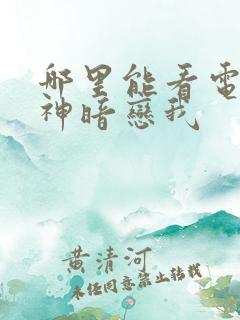 哪里能看電
神暗戀我
黄清河
未经同意禁止转载